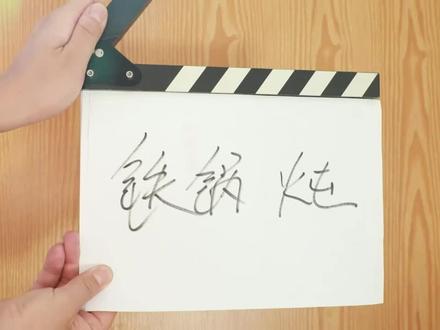 铁锅炖